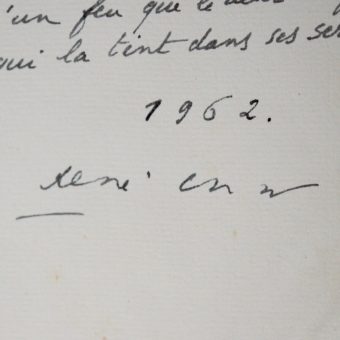 'un feu que le
qui la tint dans ses
1962.
René Char